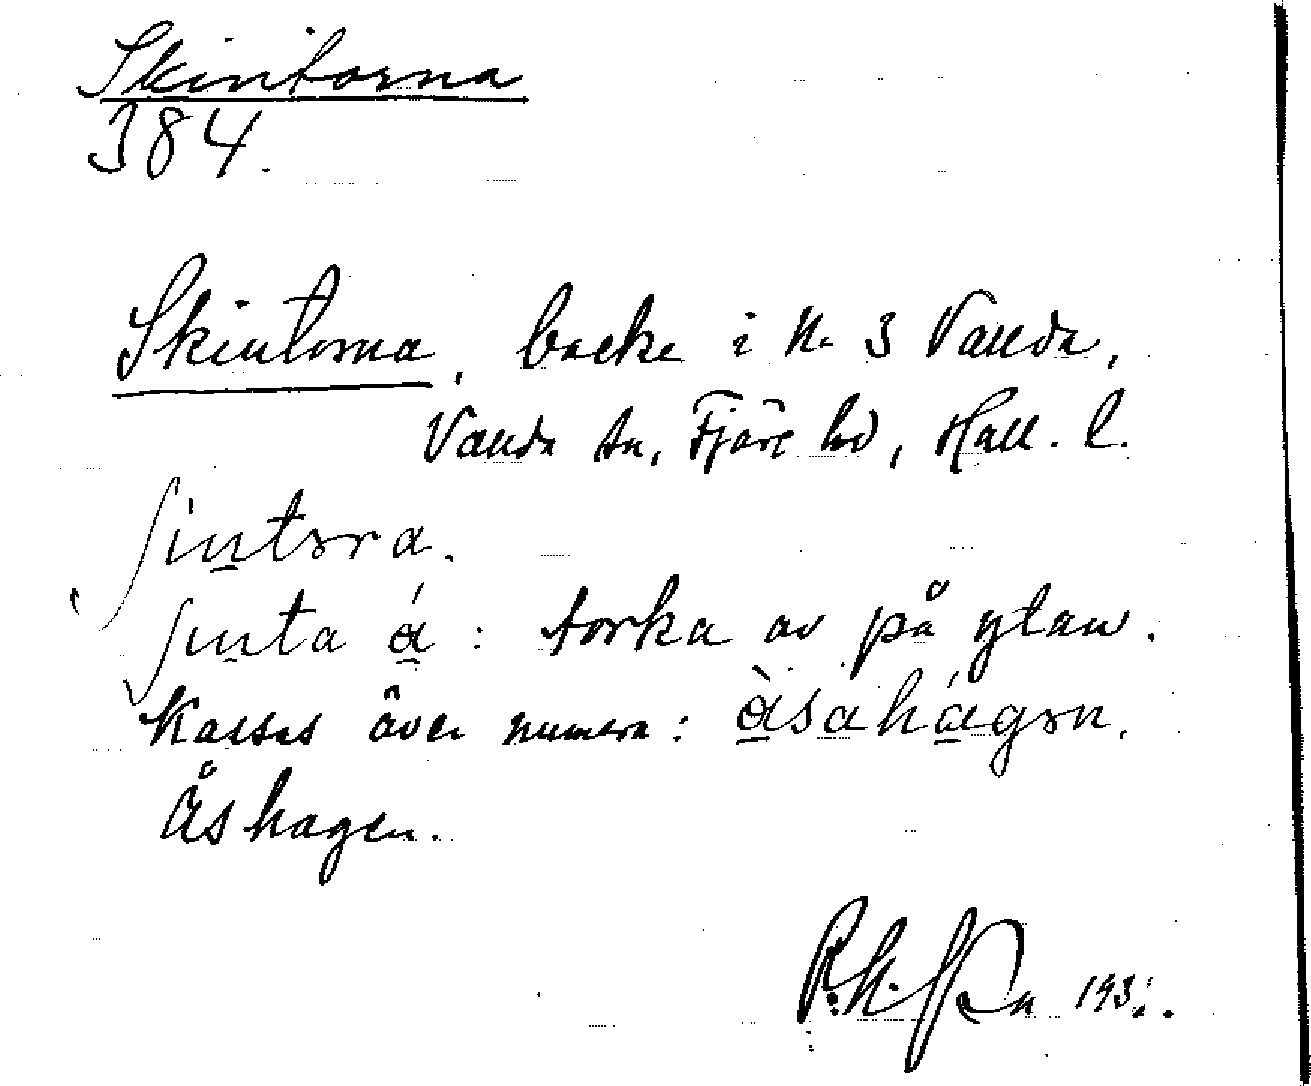 Skintorna
384.
Skintorna, backe i N. 3 Vallda,
Vallda sn, Fjäre hd, Hall. l.
ʃintɜra.
ʃinta å: torka av på ytan.
Kallas även numera: åsahågɜn.
Åshagen.
193